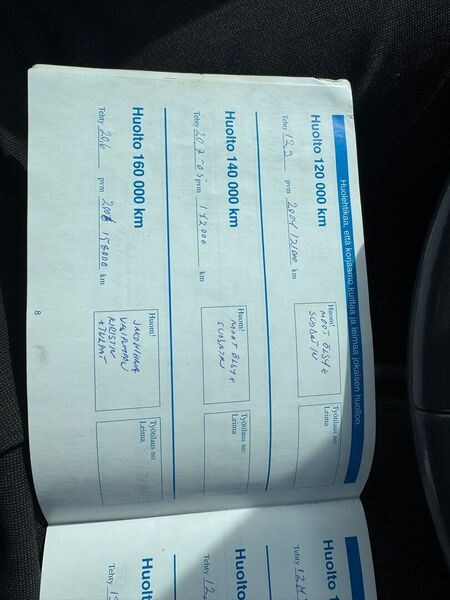 Huolehtikaa, että korjaamo kuittaa ja leimaa jokaisen huollon.
Huolto 120 000 km
Tehty 12.9 pvm 2004 121000 km
Huom!
MOOT ÖLJY+
SUODATIN
Työtilaus no:
Leima
Huolto 140 000 km
Tehty 20.7-05 pvm 142000 km
Huom!
MOOT ÖLJY+
Työtilaus no:
Leima
Huolto 160 000 km
Tehty 20/6 pvm 2006 158000 km
Huom!
JAKOHIHNA
KIRISTIN
+TULPAT
Työtilaus no:
Leima
8
Huolto 1
Tehty 12
Huolto
Tehty 12
Huol
Tehty